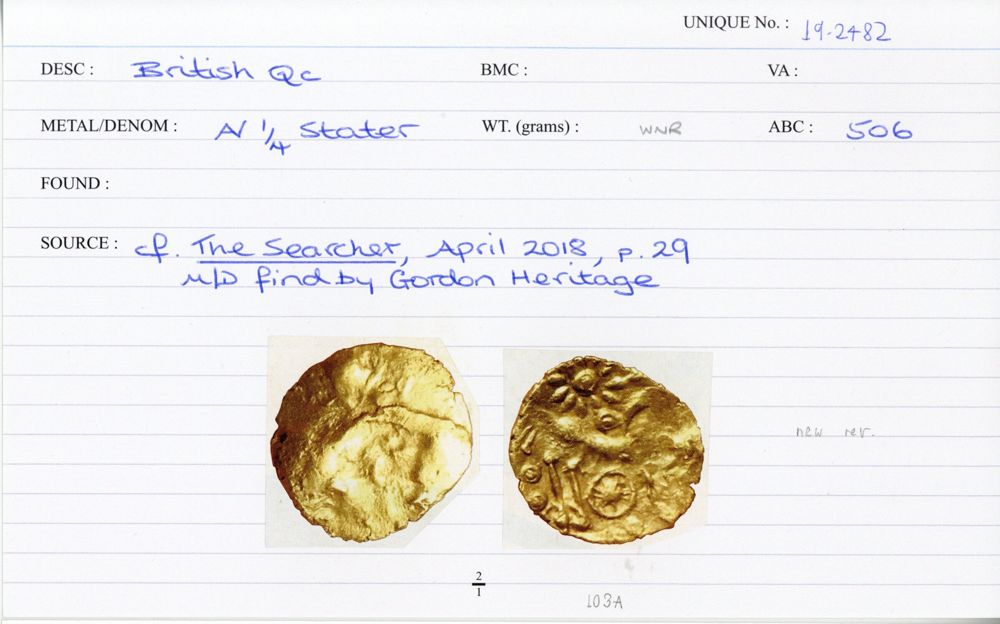 UNIQUE No. : 19-2482
DESC : British Qc BMC : VA :
METAL/DENOM : AV 1/4 Stater WT. (grams) : WNR ABC : 506
FOUND :
SOURCE : cf. The Searcher, April 2018, p. 29
M/D find by Gordon Heritage
new rev.
2/1
103A